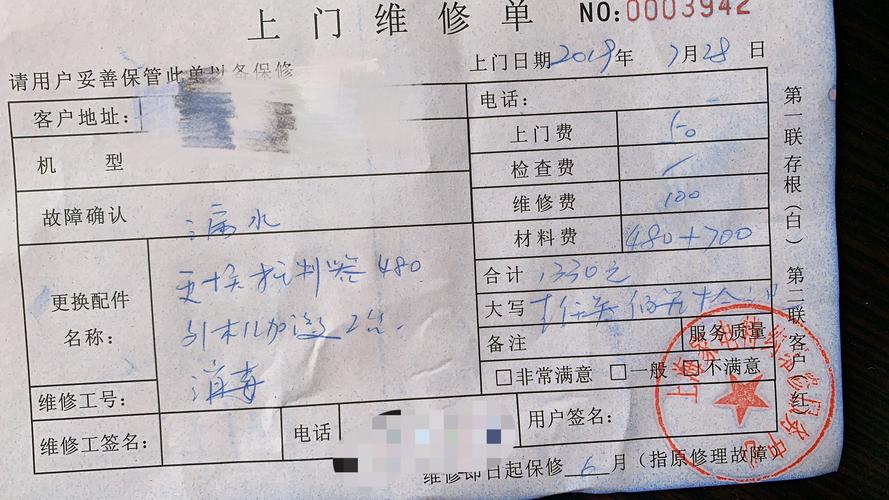 上门维修单 NO:0003942
请用户妥善保管此单以备保修
上门日期2019年7月28日
客户地址:
电话:
机型
上门费 50
检查费 /
故障确认 漏水
维修费 100
材料费 480+700
更换配件名称:
更换 480
外机加 2台
消毒
合计 1330元
大写
备注
服务质量
□非常满意 □一般 □不满意
维修工号:
维修工签名:
电话
用户签名:
维修即日起保修 6 月(指原修理故障
第一联存根(白) 第二联客户(红)